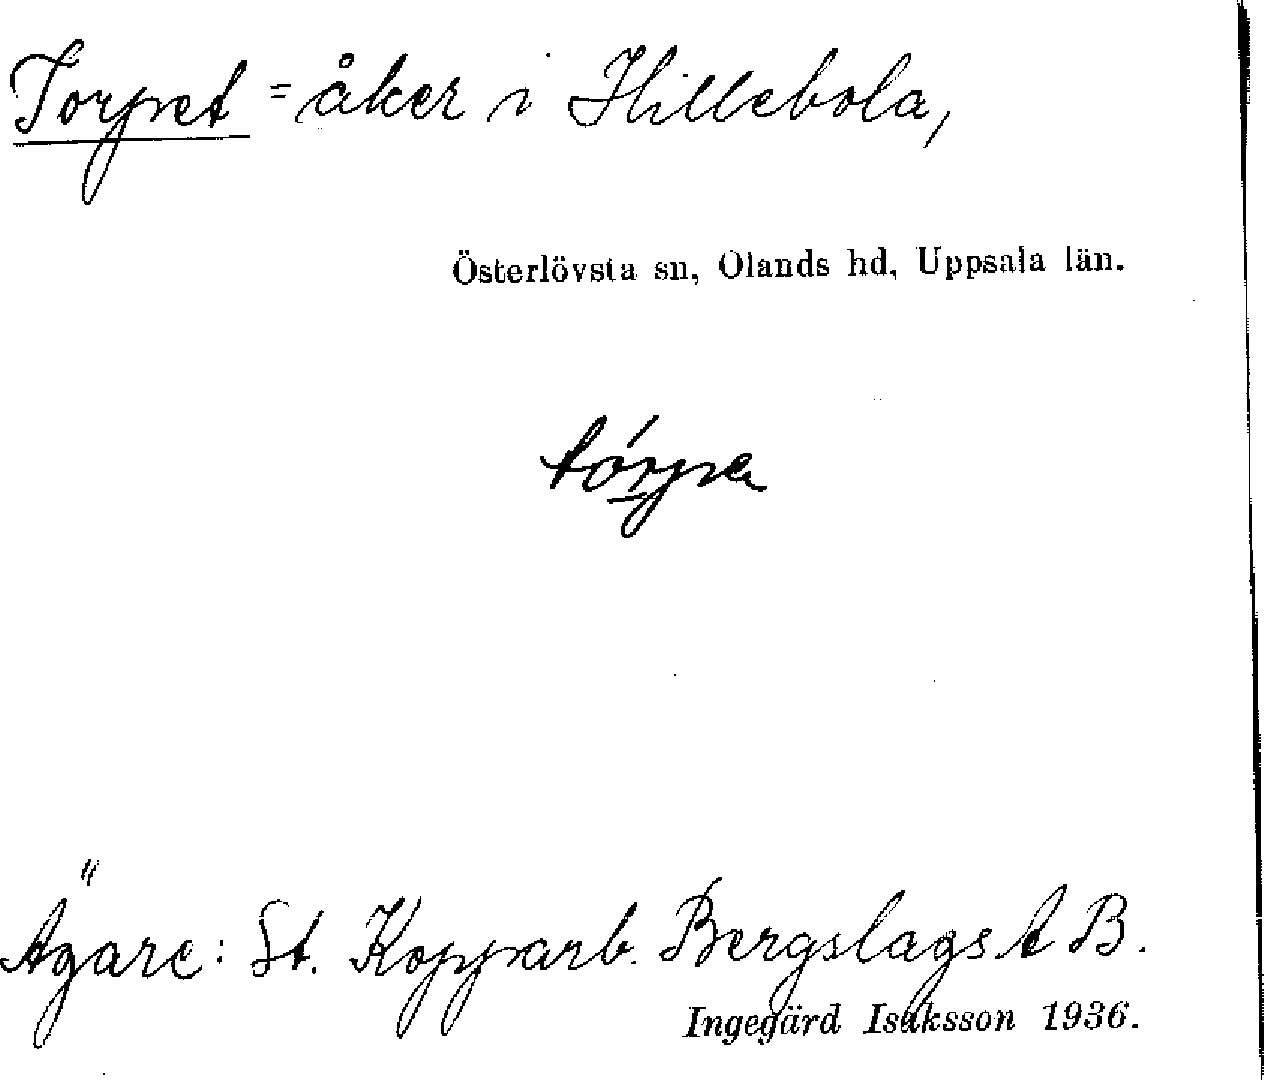 Torpet = åker i Hillebola,
Österlövsta sn, Olands hd, Uppsala län.
tórpe
Ägare: St. Kopparb. Bergslags A B.
Ingegärd Isaksson 1936.